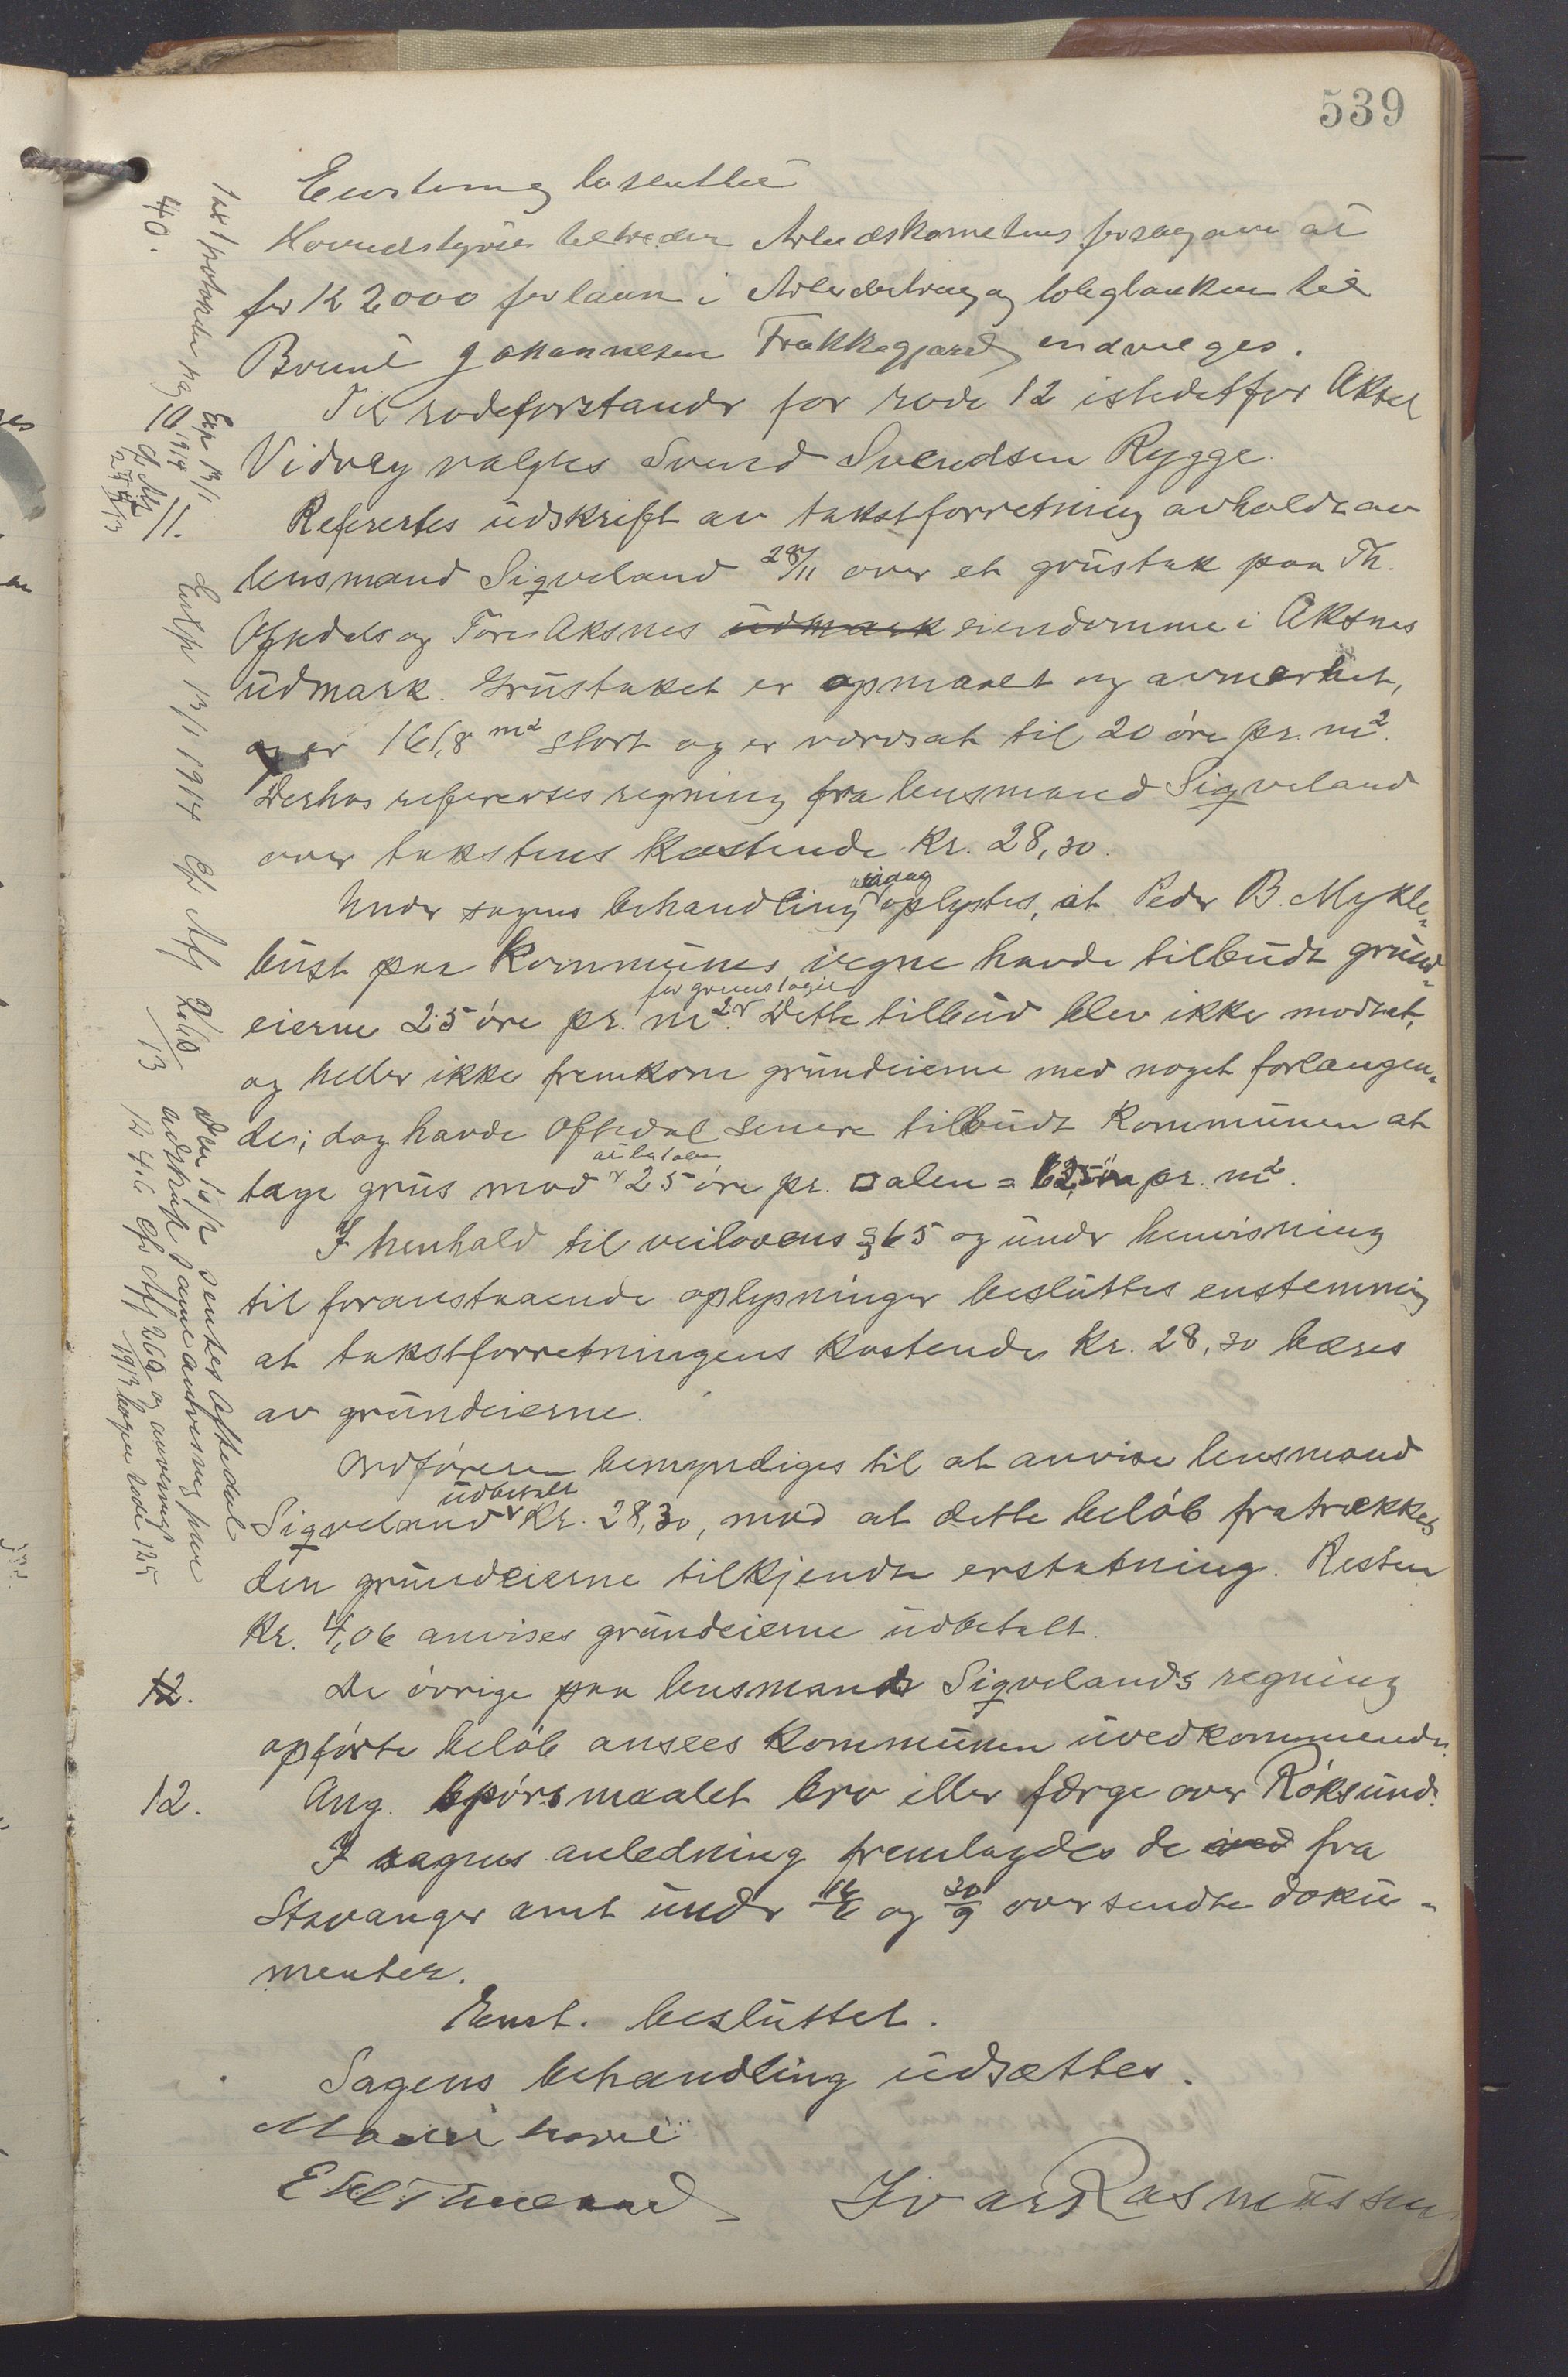 539
Enstemig besluttet
Herredsstyret tiltræder Arbeidskomiteens forslag om at
for K 2000 forlaan i Arbeiderbrug og boligbanken til
Bernt Johannesen Frakkagjærd indvilges.
10. Til rodeforstandr for rode 12 istedetfor Aksel
Vidvey valgtes Svend Svendsen Rygge.
11. Refereertes udskrift av takstforretning avholdt av
lensmand Sigveland 28/11 over et grustak paa Th.
Oftedals og Tore Aksnes udmark eiendomme i Aksnes
udmark. Grustaket er opmaalt og avmerket,
og er 161,8 m2 stort og er værdsat til 20 øre pr. m2.
Derhos refererses regning fra lensmand Sigveland
over takstens kostende Kr. 28,30.
Under sagens behandling idag oplystes, at Peder B. Mykle-
bust paa Kommunes vegne havde tilbudt grund-
eierne 25 øre pr. m2. Dette tilbud blev ikke modtat,
og heller ikke fremkom grundeierne med noget forlangen-
de; dog havde Oftedal senere tilbudt Kommunen at
tage grus mod at betale 25 øre pr. □alen = 62,5 øre pr. m2.
I henhold til veilovens § 65 og under henvisning
til foranstaaende oplysninger besluttes enstemmig
at takstforretningens kostende Kr. 28,30 bæres
av grundeierne.
Ordføreren bemyndiges til at anvise lensmand
Sigveland udbetalt Kr. 28,30, mod at dette beløb fratrækkes
den grundeierne tilkjendte erstatning. Resten
Kr. 4,06 anvises grundeierne udbetalt.
12. De øvrige paa lensmand Sigvelands regning
opførte beløb ansees Kommunen uvedkommende.
12. Ang. spørsmaalet bro eller færge over Røksund.
I sagens anledning fremlagdes de ved fra
Stavanger amt under 16/6 og 30/9 oversendte doku-
menter.
Enst. besluttet.
Sagens behandling udsættes.
Møtet hævet
Ivar Rasmussen
40.
Exp 13/1
1914
Exp 13/1 1914